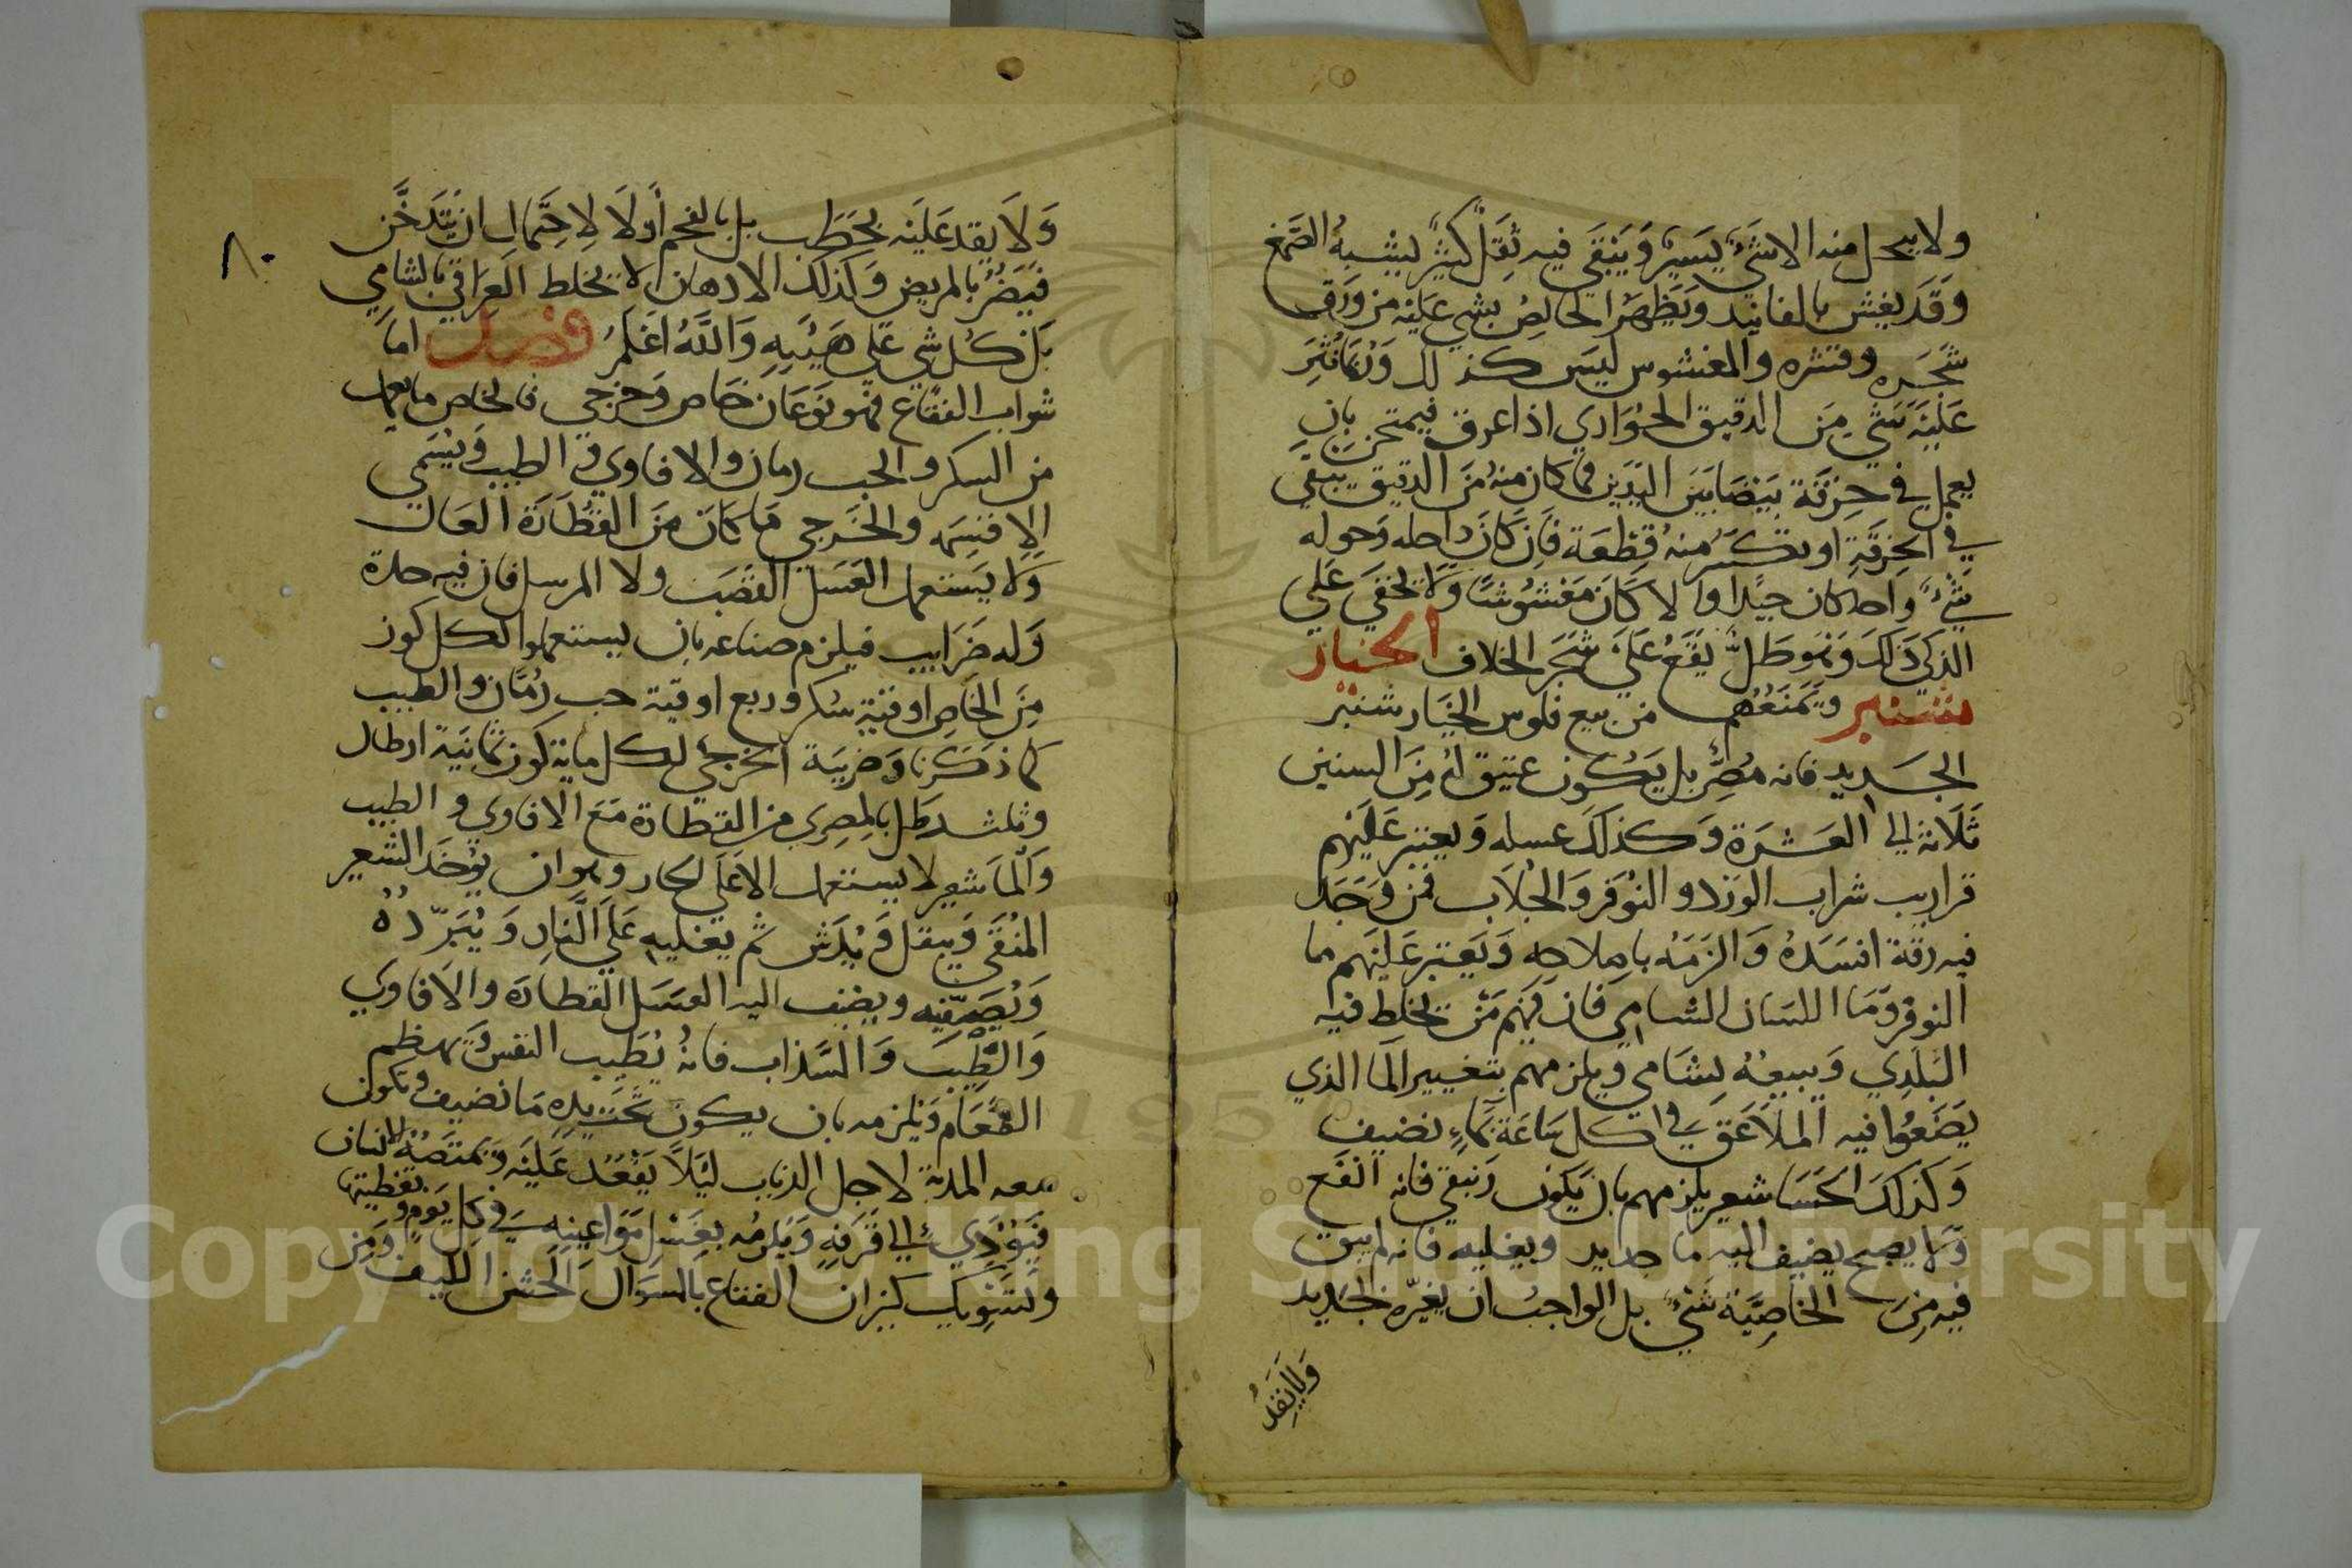 ولا ينحل منه الا شيءٌ يسيرٌ وَيَبْقَى فيه ثقلٌ كثيرٌ ليشبهُ الصَّمغ
وَقَد يغش بالفانيد وَيَظهَرُ الخالِصُ بشي عَليْه من وَرَق
شَجَره وقشره والمغشوس ليَس كذلك وَرُبَّما نُثِرَ
عَليْهَ شَي مِن الدقيق الحُوّارى اذا عرق فيمتحن بان
يعمل في خِرْقَة بَيْضَا بَيْنَ اليَدَين فما كان منهُ مَن الدقيق يبقى
في الخِرقَةِ او يكسَر منهُ قِطْعَة فَاِن كَانَ داخله وَحوله
شيْء واحد كان جَيّدا والا كَانَ مَغْشُوشًا وَلَا يخفي عَلى
الذكي ذَلِكَ وَهُوَ طَلٌّ يَقَعُ عَلى شَجَر الخلاف الخيار
شنبر وَيَمنَعُهُم من بيع فلوس الخيَار شنبْر
الجَديد فانه مُضِرٌّ بل يَكُون عتيق لهُ مِنَ السنين
ثَلَاثة الى العَشَرَة وَكذلَكَ عسله وَيعتبر عَليْهم
قراريب شراب الورد و النُوفَر وَالجُلاب فمَن وَجَد
فيه رقة افسَدهُ وَالزَمَهُ باصلاحه وَيَعتبر عَليْهم ما
النوفر وَمَا اللسَان الشامِي فان فيهم مَنْ يخلِط فيه
البَلَدِي وَيبيعُهُ بشَامى ويلزمهم بتغيير الَما الذي
يَضَعُوا فيه المَلاعَق في كل سَاعَة بماءٍ نضيف
وَكذلكَ الحَسَا شعير يلزمهم بان يَكون رَبيعي فانه انفع
وَلا يصبح يضيف اليه ما جديد ويغليه فانه لم يبق
فيه مِن الخَاصِيَّة شَيْءٌ بل الواجبُ ان يغيّره بالجَديد
وَلَا يَقِدُ
٨٠
وَلَا يقد عَليْه بحَطَب بل بالفحم أولَا لاحِتمَال ان يتَدخَّن
فيَضُرُّ بالمريض وَكذلك الادهان لا يخلط العِرَاقي بالشامي
بَل كُل شي عَلى هَيْئَتِهِ وَاللَّهُ اعْلَمُ فصل امَا
شراب الفقاع فهو نوعَان خَاص وَخرجى فالخاص ما يعمل
من السكر والحب رمان والافاوي والطيب وَيُسَمى
الاقسمه والخَرجي مَا كانَ مَن القُطَارَة العَال
وَلا يَستعمل العَسَل القَصَب ولا المرسل فان فيه حدة
وَله ضَرَايب فيلزم صناعه بان يستعملوا لكل كوز
مِنَ الخَاص اوقية سُكر وربع اوقية حب رُمّان والطيب
كما ذكَرنا وَضريبَة الخرجي لكل ماية كوز ثمانية ارطال
وثلث رَطل بالمصرِي من القطارة مَعَ الافاوي والطيب
وَالمَاشعير لا يستعمل الا عَلى الحار وهو ان يؤخَذ الشعير
المنُقَى وَيبقل وَيُدَش ثم يغليه عَلى النَّارِ وَيُبَرّدُهُ
وَيُصَفّيه ويضيف اليه العسَل القطارَة والافاوي
وَالطيبَ وَالسَّذاب فانهُ يُطَيب النفس وَيهظم
الطعَام وَيلزمه بان يكون تحت يَدِهِ مَا نضيف وَتكون
معه المذبة لاجل الذباب ليَلاً يَقْعُد عَليْه وَيمتَصّهُ الانسان
فيَؤذي الى قرفهِ وَيلزمُه بغسْل مَواعينِه في كل يَومٍ وتغطيتها
وَتسْويك كيزان الفقاع بالمسوَاك الخشن الليف وَمِن